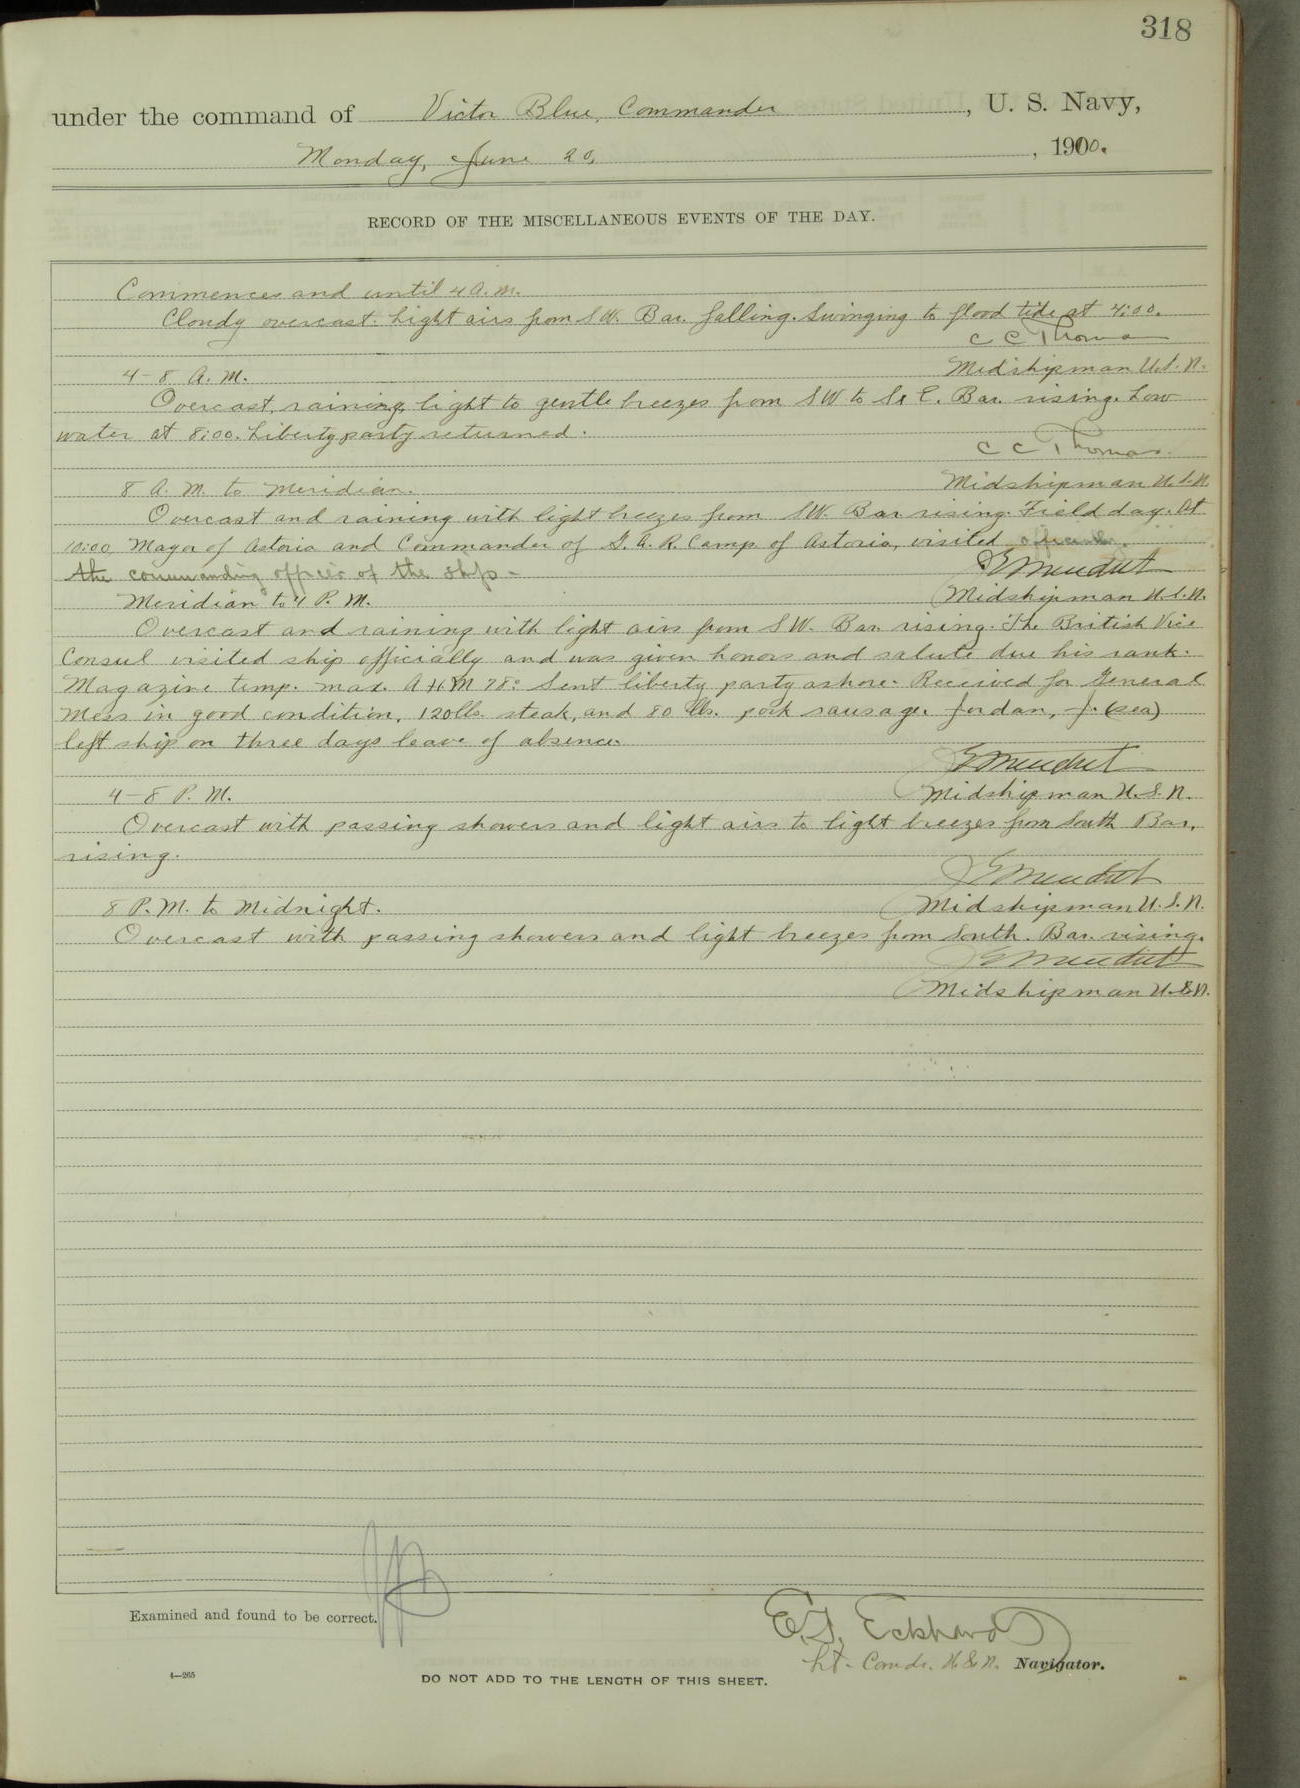 318
under the command of Victor Blue, Commander, U. S. Navy,
Monday, June 20, 1910.
RECORD OF THE MISCELLANEOUS EVENTS OF THE DAY.
Commences and until 4 A.M.
Cloudy overcast. Light airs from SW. Bar. falling. Swinging to flood tide at 4:00.
C C Thomas
4-8 A. M.
Midshipman U.S.N.
Overcast, raining, light to gentle breezes from SW to S & E. Bar. rising. Low
water at 8:00. Liberty party returned.
C C Thomas.
8 A. M. to Meridian.
Midshipman U.S.N.
Overcast and raining with light breezes from SW. Bar rising. Field day. At
10:00 Mayor of Astoria and Commander of G. A. R. Camp of Astoria, visited officially
the commanding officer of the ship-
Meridian to 4 P. M.
Midshipman U.S.N.
Overcast and raining with light airs from SW. Bar. rising. The British Vice
Consul visited ship officially and was given honors and salute due his rank.
Magazine temp. max. 78° Sent liberty party ashore. Received for General
Mess in good condition, 120 lbs. steak, and 80 lbs. pork sausage. Jordan, J. (sea)
left ship on three days leave of absence
4-8 P. M.
Midshipman U. S. N.
Overcast with passing showers and light airs to light breezes from South Bar,
rising.
8 P. M. to Midnight.
Midshipman U. S. N.
Overcast with passing showers and light breezes from South. Bar. rising.
Midshipman U.S.N.
Examined and found to be correct.
E. T. Eckhardt
Lt. Comdr. U.S.N. Navigator.
4—265
DO NOT ADD TO THE LENGTH OF THIS SHEET.